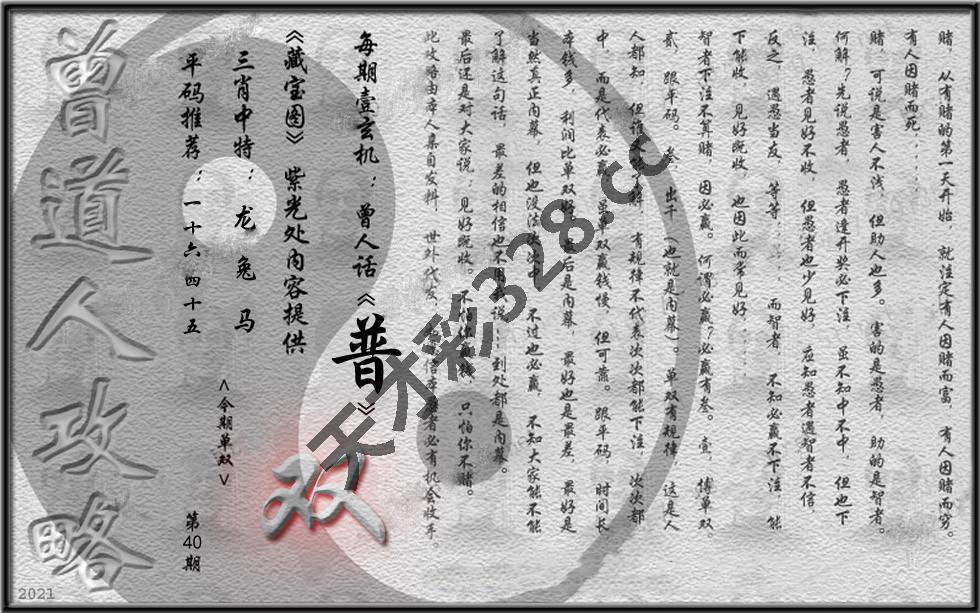 赌，从有赌的第一天开始，就注定有人因赌而富，有人因赌而穷。
有人因赌而死．．．．．．
赌，可说是害人不浅，但助人也多。害的是愚者，助的是智者。
何解？先说愚者，愚者逢开奖必下注，虽不知中不中，但也下
注，愚者见好不收，但愚者也少见好，应知愚者遇智者不信，
反之，遇愚当友，等等．．．．．而智者，不知必赢不下注，能
下能收，见好既收，也因此而常见好．．．．．
智者下注不算赌，因必赢。何谓必赢？必赢有叁。壹，博单双
贰，跟平码。叁，出千（也就是内幕）。单双有规律，这是人
人都知，但谁又了解，有规律不代表次次都能下注，次次都
中，而是代表必赢，单双赢钱慢，但可靠。跟平码，时间长
本钱多，利润比单双好，最后是内幕，最好也是最差，最好是
当然真正内幕，但也没法次次中，不过也必赢，不知大家能不能
了解这句话，最差的相信也不用我说．．．到处都是内幕。
最后还是对大家说：见好既收。不怕你赢钱，只怕你不赌。
此攻略由本人集自发料，世外代友，者必有机会收手。
每期壹玄机：曾人话《普》
《藏宝图》紫光处内容提供
三肖中特：龙兔马
平码推荐：一十六四十五
<今期单双>
双
第40期
曾道人攻略
2021
天才彩328.cc